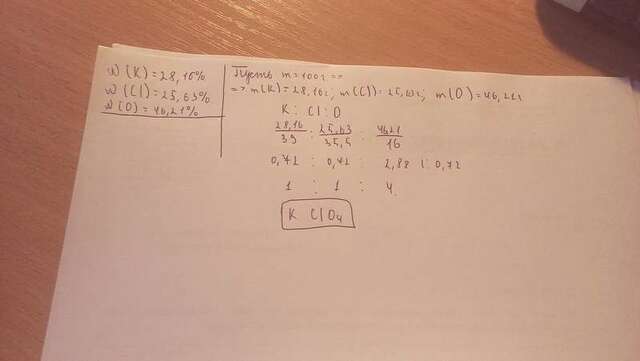 ω(K) = 28,16%
ω(Cl) = 25,63%
ω(O) = 46,21%
Пусть m = 100г =>
=> m(K) = 28,16г; m(Cl) = 25,63г; m(O) = 46,21г
K : Cl : O
28,16/39 : 25,63/35,5 : 46,21/16
0,72 : 0,72 : 2,88 | : 0,72
1 : 1 : 4
K ClO₄